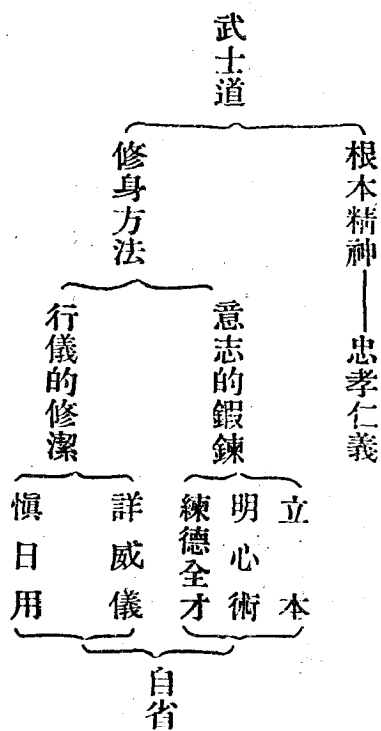 武士道
根本精神──忠孝仁義
修身方法
意志的鍜鍊
立本
明心術
練德全才
行儀的修潔
詳威儀
愼日用
自省